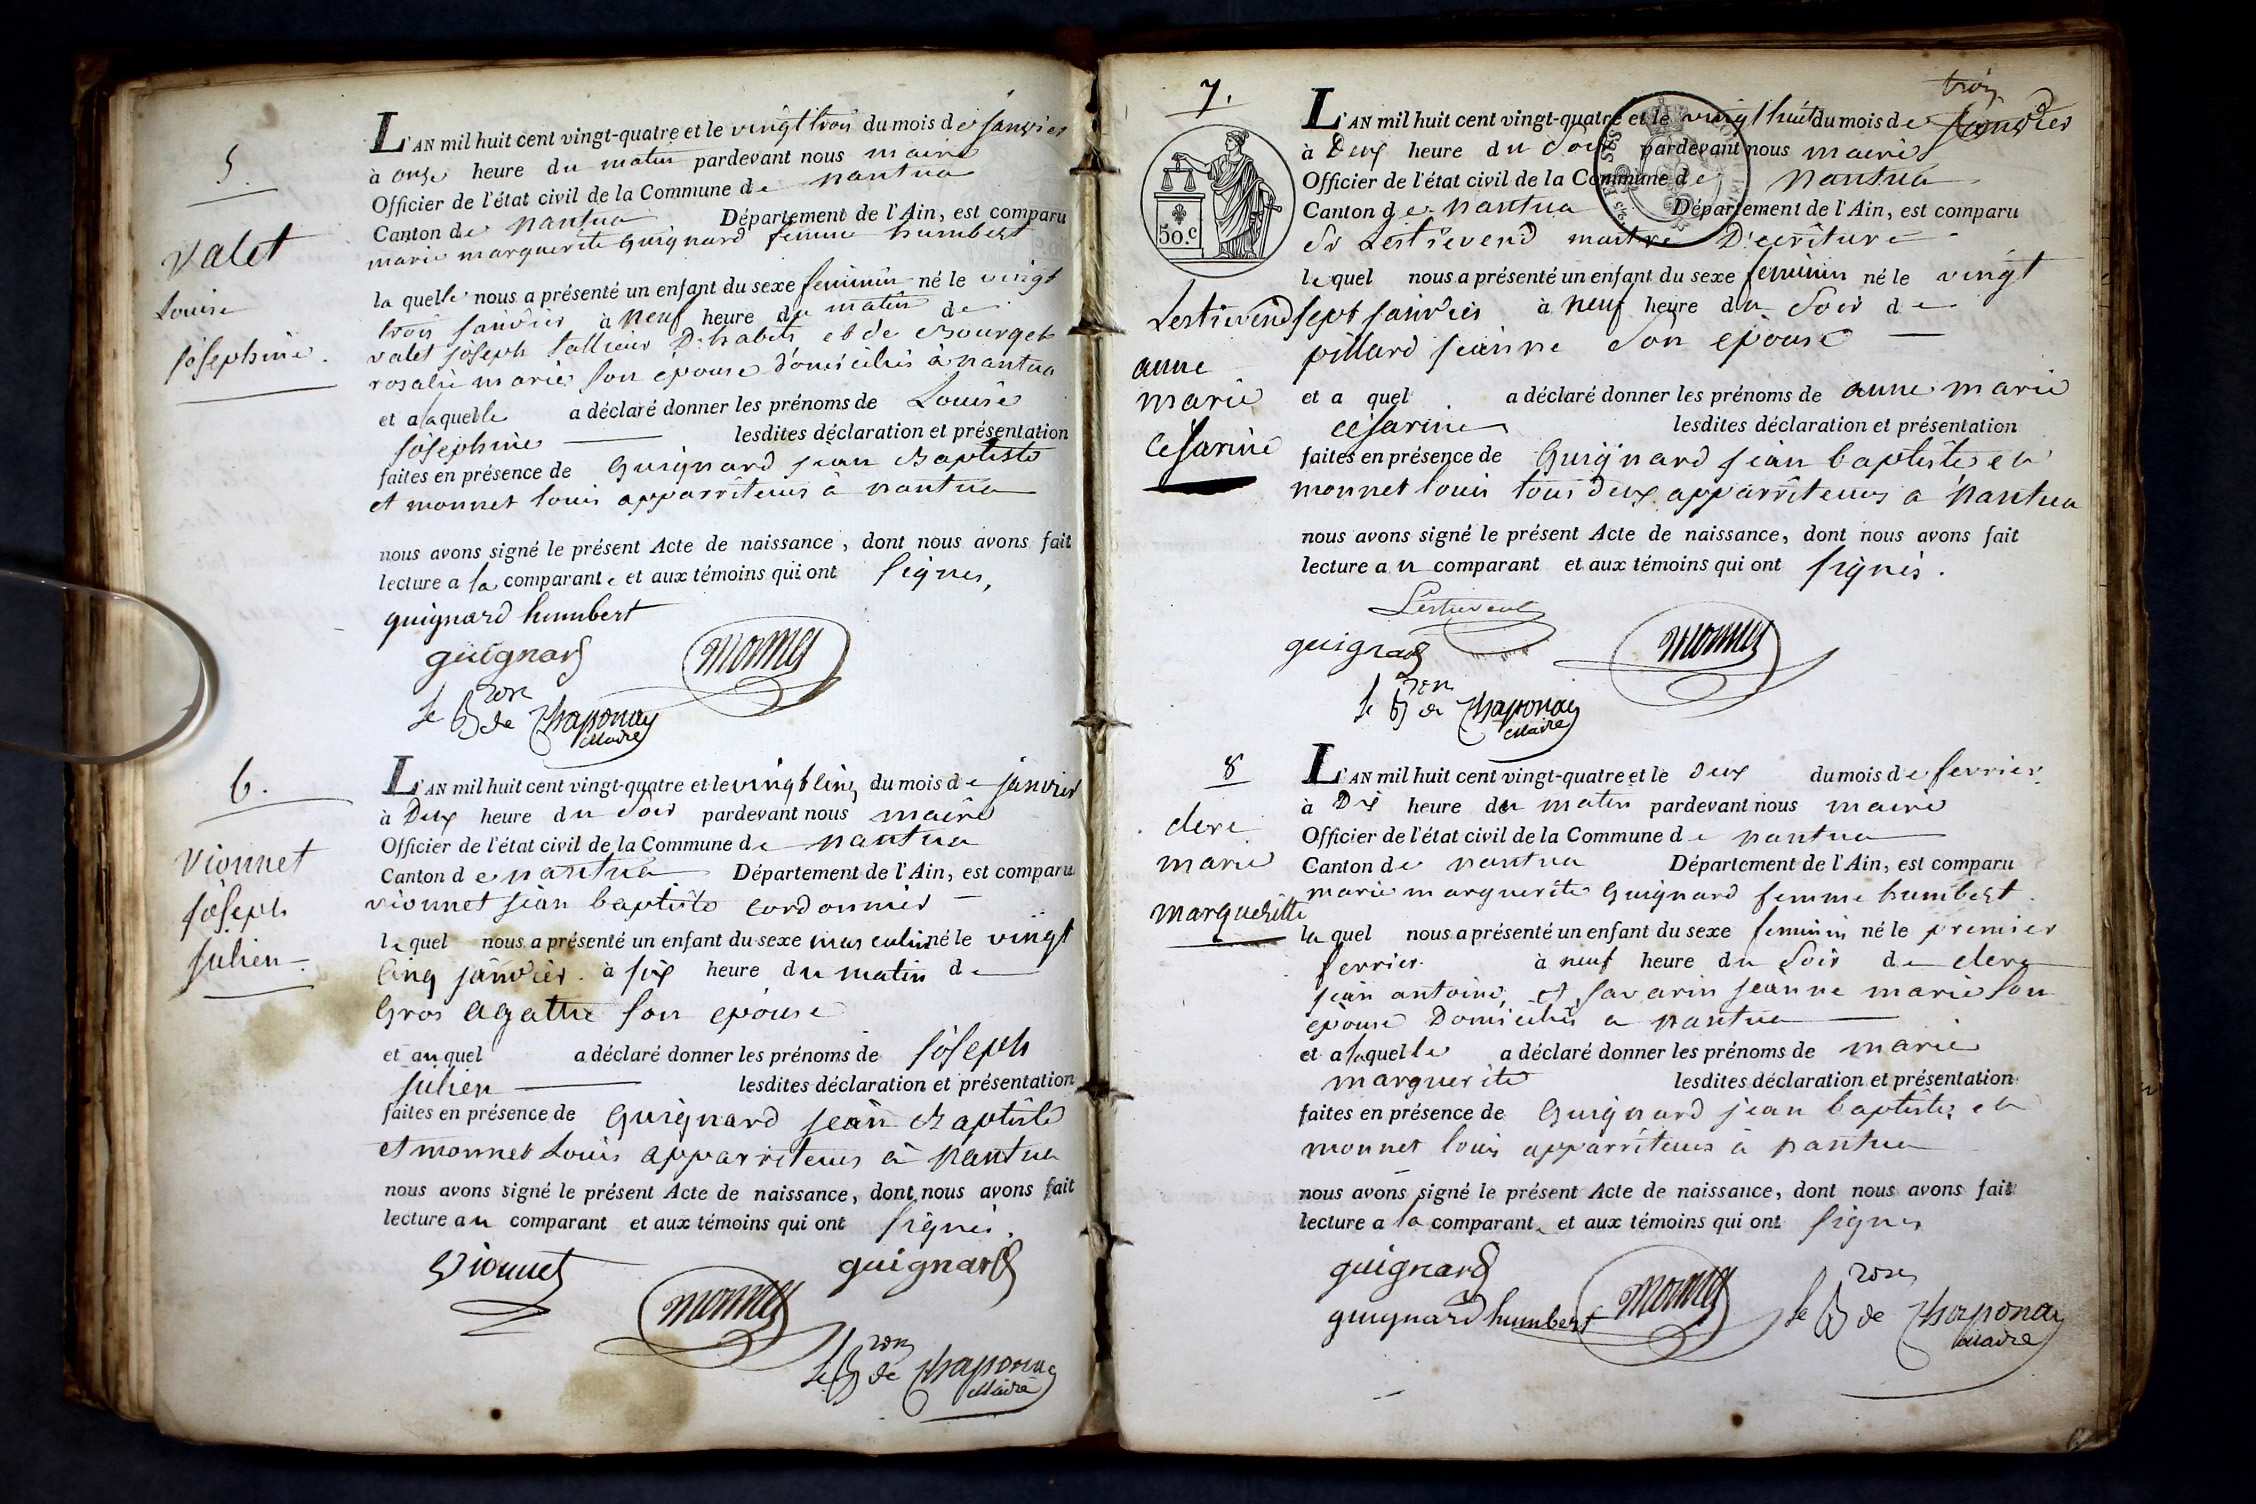 5.
Valet
Louise
joséphine.
L'AN mil huit cent vingt-quatre et le vingt trois du mois de janvier
à onze heure du matin pardevant nous maire
Officier de l'état civil de la Commune de nantua
Canton de nantua Département de l'Ain, est comparu
marie marguerite Guignard femme humbert
la quelle nous a présenté un enfant du sexe feminin né le vingt
trois janvier à neuf heure du matin de
valet joseph tailleur D'habits et de Bourget
rosalie marie son epouse domiciliés à nantua
et a laquelle a déclaré donner les prénoms de Louise
joséphine lesdites déclaration et présentation
faites en présence de Guignard jean Baptiste
et monnet louis apparriteurs à nantua
nous avons signé le présent Acte de naissance, dont nous avons fait
lecture a la comparante et aux témoins qui ont signés,
guignard humbert
guignard monnet
le Bron de Chaponay
Maire
6.
Vionnet
joseph
julien.
L'AN mil huit cent vingt-quatre et le vingt cinq du mois de janvier
à Deux heure du soir pardevant nous maire
Officier de l'état civil de la Commune de nantua
Canton de nantua Département de l'Ain, est comparu
vionnet jean baptiste cordonnier
lequel nous a présenté un enfant du sexe masculin né le vingt
cinq janvier à six heure du matin de
Gros agathe son epouse
et au quel a déclaré donner les prénoms de joseph
julien lesdites déclaration et présentation
faites en présence de Guignard jean Baptiste
et monnet Louis apparriteurs à nantua
nous avons signé le présent Acte de naissance, dont nous avons fait
lecture au comparant et aux témoins qui ont signés.
Vionnet guignard
monnet
le Bron de Chaponay
Maire
7.
50.c
Lestievend
anne
marie
césarine
L'AN mil huit cent vingt-quatre et le vingt huit du mois de janvier
à Deux heure du soir pardevant nous maire
Officier de l'état civil de la Commune de nantua
Canton de nantua Département de l'Ain, est comparu
Sr Lestievend maitre D'ecriture
lequel nous a présenté un enfant du sexe feminin né le vingt
sept janvier à neuf heure du soir de
pillard jeanne son epouse
et a quel a déclaré donner les prénoms de anne marie
césarine lesdites déclaration et présentation
faites en présence de Guignard jean baptiste et
monnet louis tous deux apparriteurs a nantua
nous avons signé le présent Acte de naissance, dont nous avons fait
lecture au comparant et aux témoins qui ont signés.
Lestievend
guignard monnet
le Bron de Chaponay
Maire
8
clerc
marie
margueritte
L'AN mil huit cent vingt-quatre et le deux du mois de fevrier
à Dix heure du matin pardevant nous maire
Officier de l'état civil de la Commune de nantua
Canton de nantua Département de l'Ain, est comparu
marie marguerite Guignard femme humbert
la quel nous a présenté un enfant du sexe feminin né le premier
fevrier à neuf heure du soir de clerc
jean antoine et savarin jeanne marie son
epouse Domiciliés a nantua
et a laquelle a déclaré donner les prénoms de marie
marguerite lesdites déclaration et présentation
faites en présence de Guignard jean baptiste et
monnet louis apparriteurs à nantua
nous avons signé le présent Acte de naissance, dont nous avons fait
lecture a la comparante et aux témoins qui ont signés
guignard
guignard humbert monnet le Bron de Chaponay
Maire